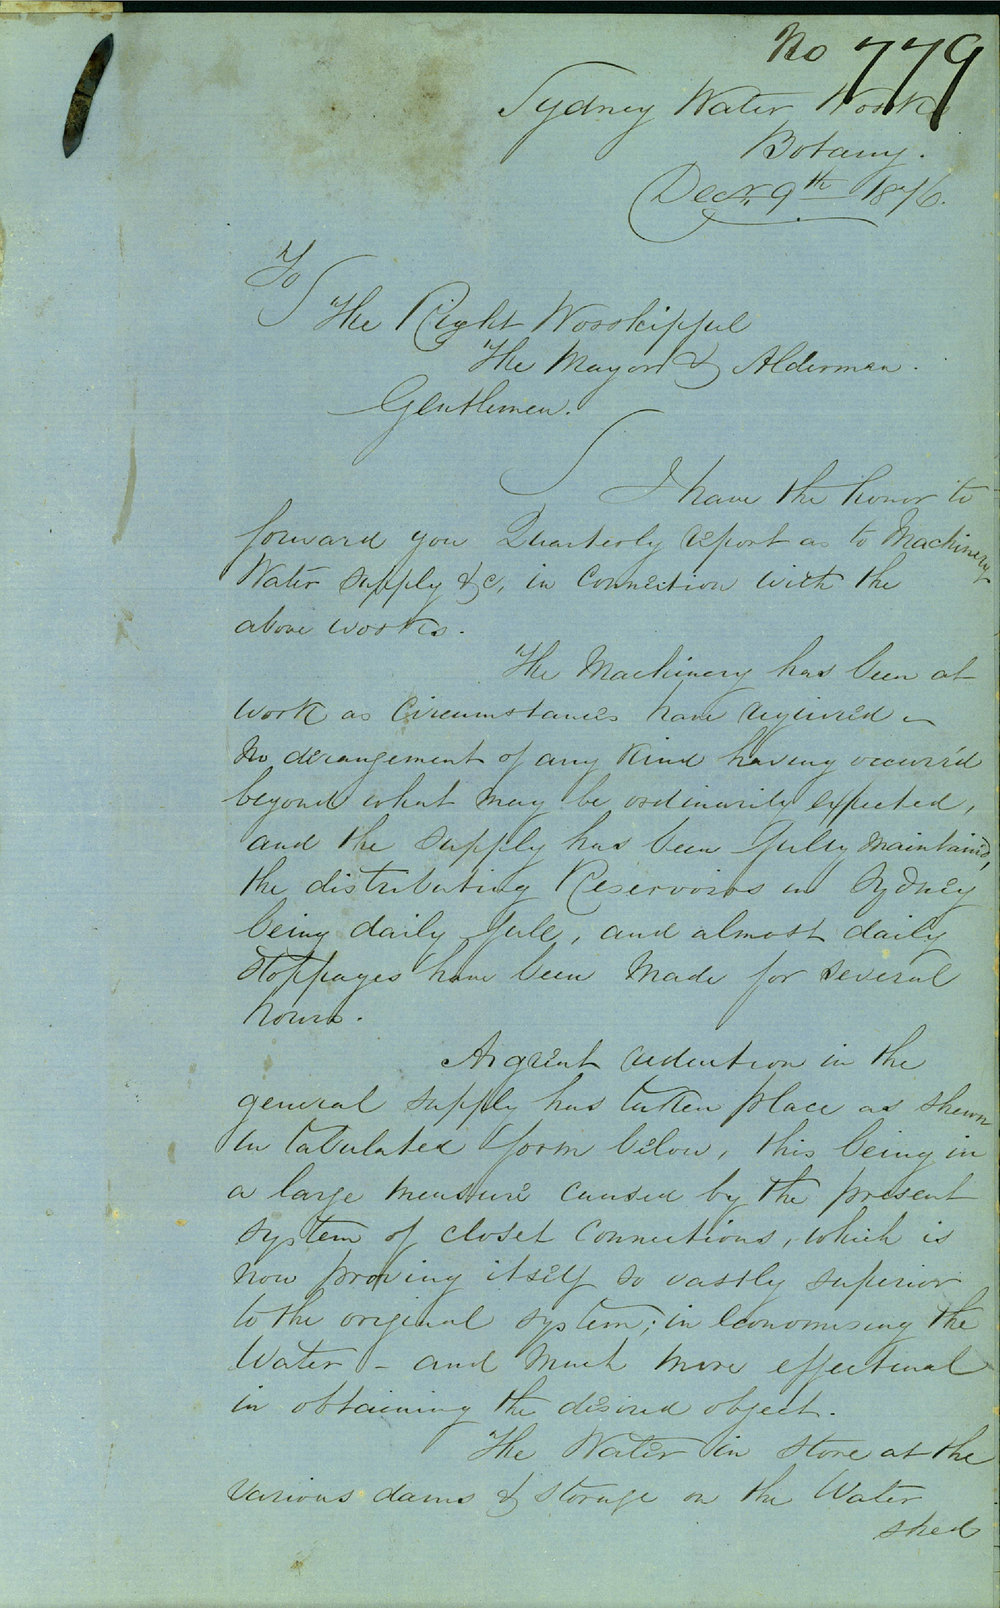 No 779
Sydney Water Works
Botany.
Decr. 9th 1876.
To
The Right Worshipful
The Mayor & Alderman.
Gentlemen.
I have the honor to
forward you Quarterly report as to Machinery
Water supply &c, in connection with the
above works.
The Machinery has been at
work as circumstances have required -
no derangement of any kind having occurr'd
beyond what may be ordinarily expected,
and the supply has been fully maintain'd,
the distributing Reservoirs in Sydney
being daily full, and almost daily
stoppages have been made for several
hours.
A great reduction in the
general supply has taken place as shewn
in tabulated form below, this being in
a large measure caused by the present
system of closet connections, which is
now proving itself so vastly superior
to the original system; in economising the
Water - and much more effectual
in obtaining the desired object.
The Water in store at the
various dams & storage on the Water
shed